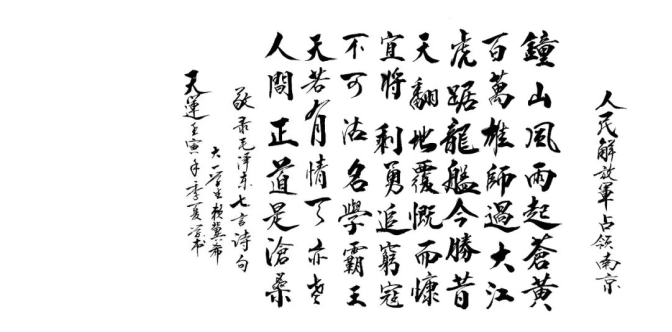 人民解放軍占領南京
鐘山風雨起蒼黃
百萬雄師過大江
虎踞龍艦今勝昔
天翻地覆慨而慷
宜將剩勇追窮寇
不可沽名學霸王
天若有情天亦老
人間正道是滄桑
敬录毛泽东七言詩句
大一学生冀希
天運壬寅年季夏书